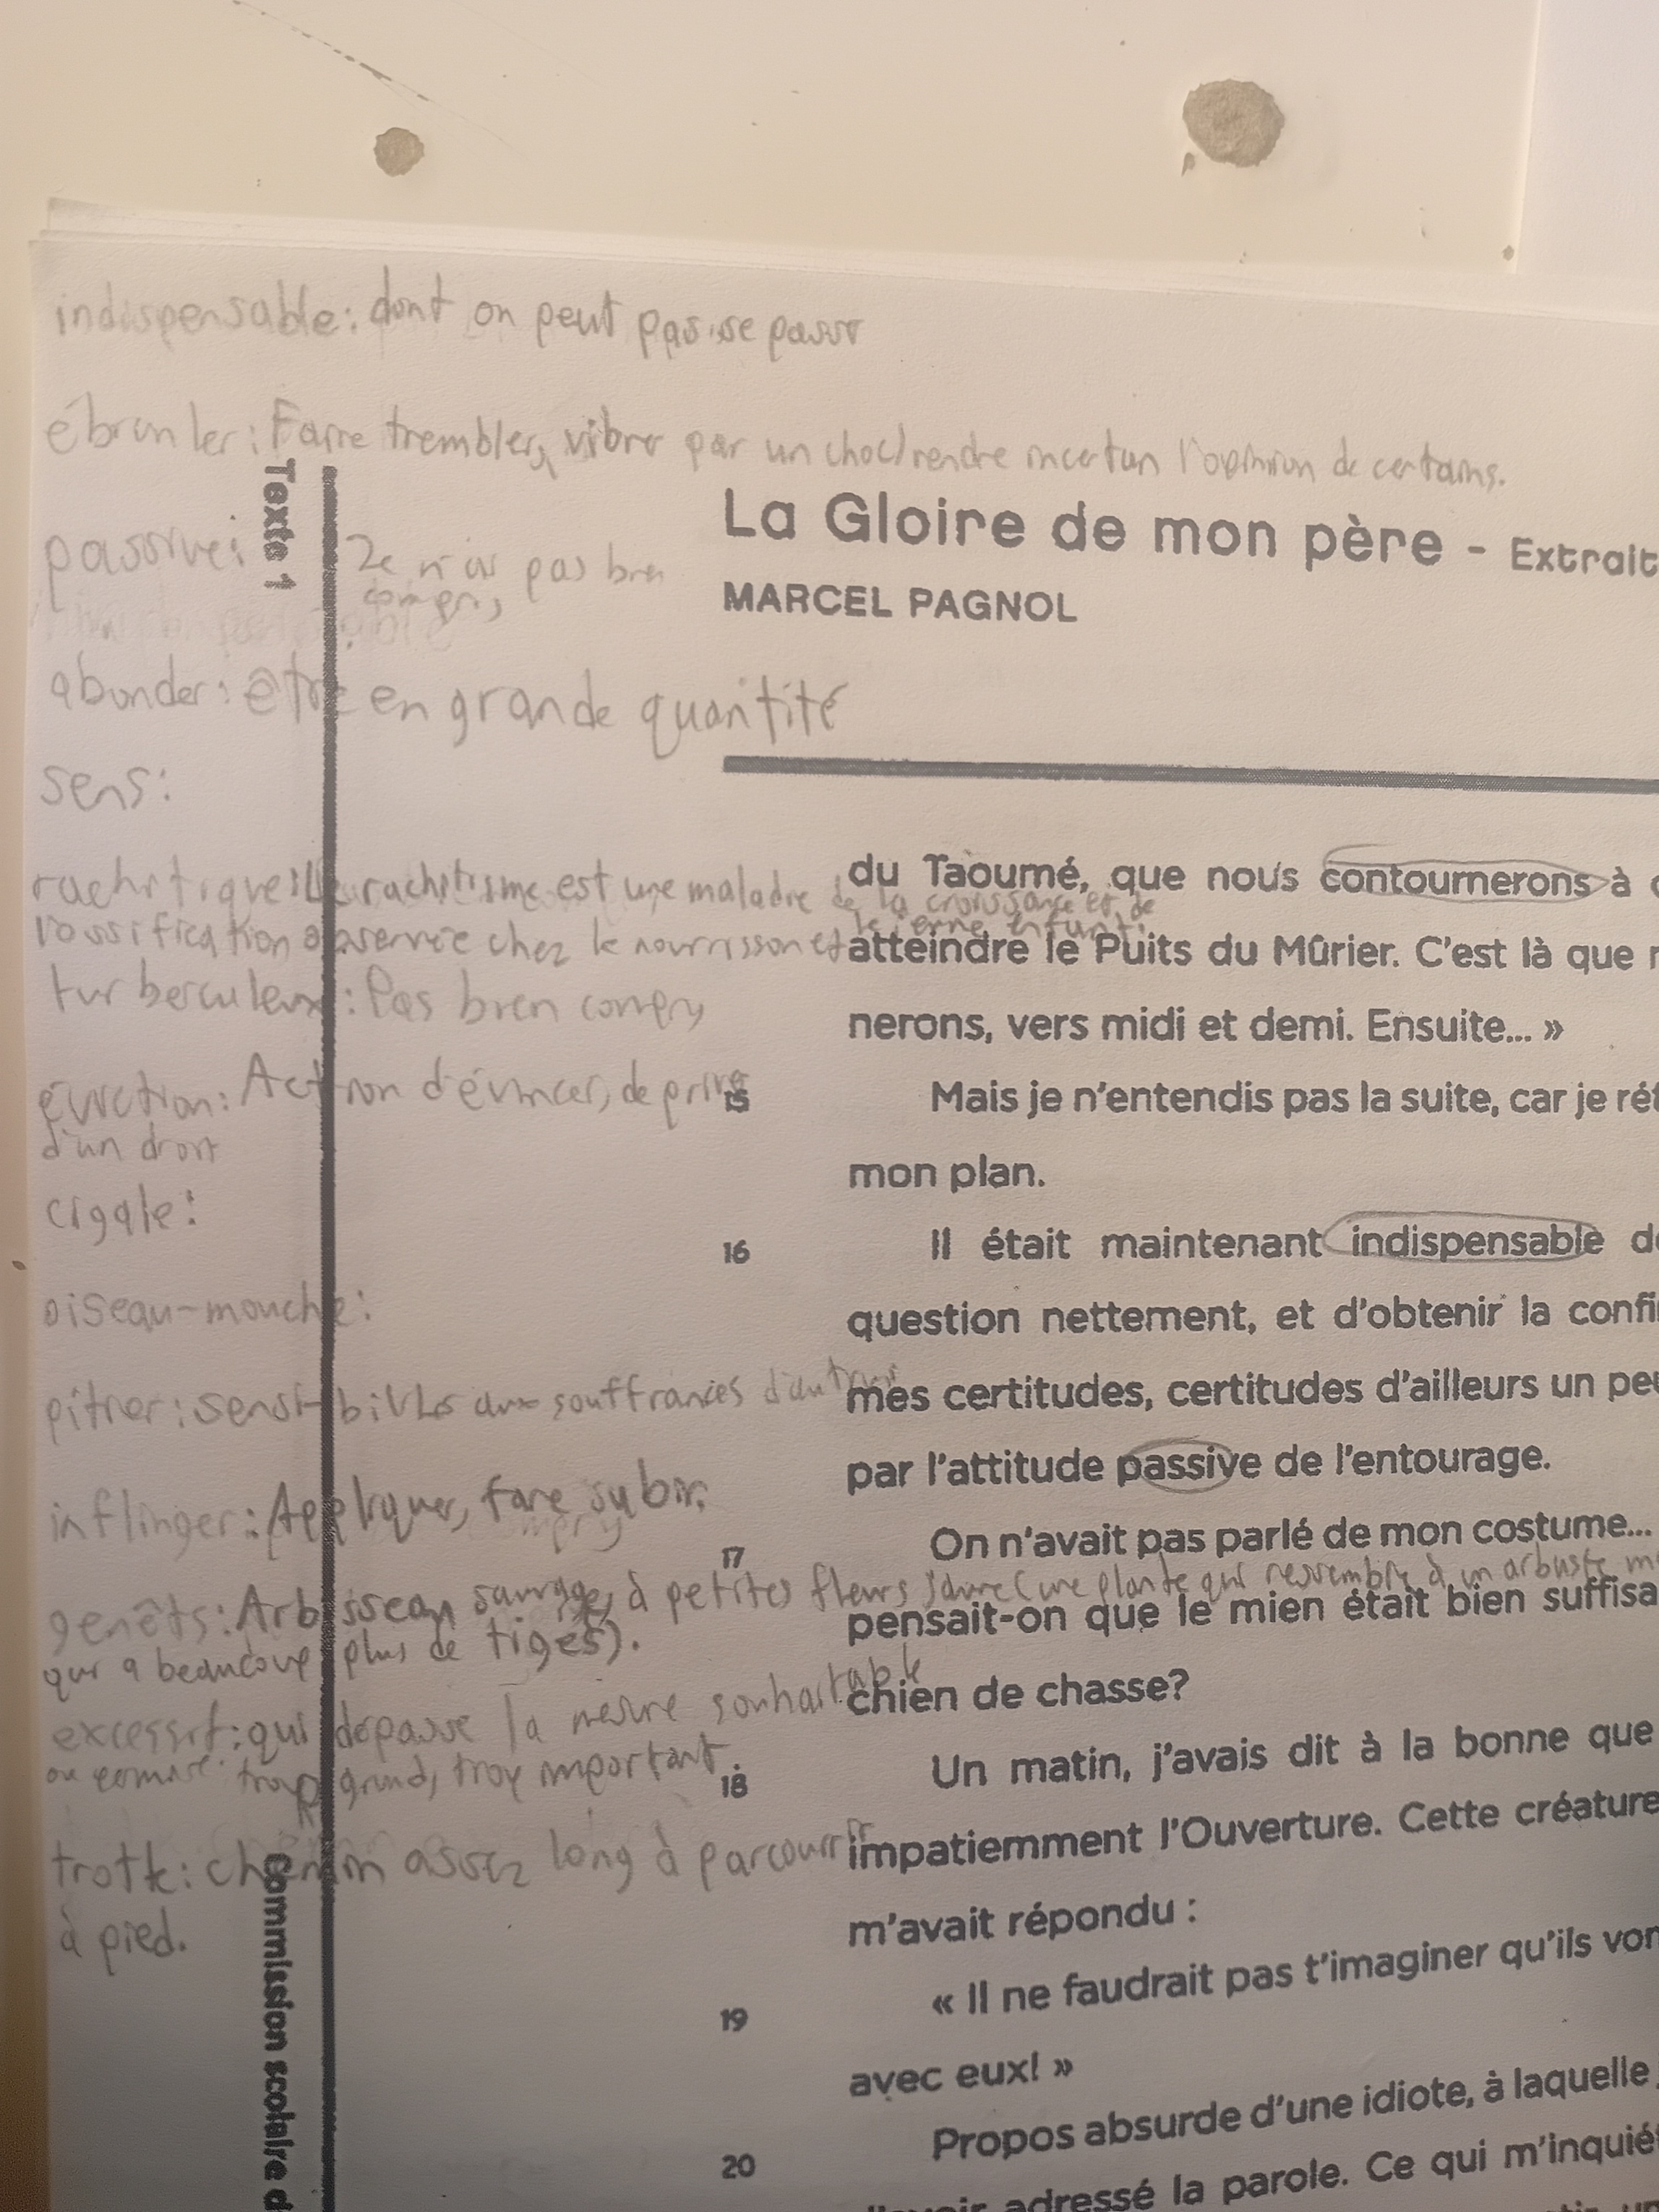 indispensable: dont on peut pas se passer
ébranler: Faire trembler, vibrer par un choc/rendre incertain l'opinion de certains.
Texte 1
La Gloire de mon père - Extrait
MARCEL PAGNOL
passive: Je n'ai pas bien
compris
abonder: être en grande quantité
sens:
rachitique: Le rachitisme est une maladie de la croissance et de
l'ossification observée chez le nourrisson et le jeune enfant.
turberculeux: Pas bien compry
éviction: Action d'évincer, de priver
d'un droit
cigale:
oiseau-mouche:
pitier: sensibilité aux souffrances d'autrui
inflinger: Appliquer, faire subir.
genêts: Arbisseau sauvage, à petites fleurs jaune (une plante qui ressemble à un arbuste
qui a beaucoup plus de tiges).
excessif: qui dépasse la mesure souhaitable
ou trop grand, trop important.
trotte: chemin assez long à parcourir
à pied.
du Taoumé, que nous contournerons à
atteindre le Puits du Mûrier. C'est là que
nerons, vers midi et demi. Ensuite... »
15 Mais je n'entendis pas la suite, car je ré
mon plan.
16 Il était maintenant indispensable de
question nettement, et d'obtenir la confi
mes certitudes, certitudes d'ailleurs un peu
par l'attitude passive de l'entourage.
17 On n'avait pas parlé de mon costume...
pensait-on que le mien était bien suffisa
chien de chasse?
18 Un matin, j'avais dit à la bonne que
impatiemment l'Ouverture. Cette créature
m'avait répondu :
19 « Il ne faudrait pas t'imaginer qu'ils von
avec eux! »
20 Propos absurde d'une idiote, à laquelle
adressé la parole. Ce qui m'inquié
Commission scolaire d